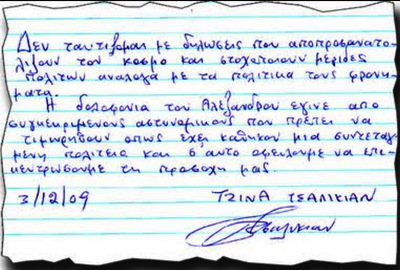 Δεν ταυτιζομαι με δηλωσεις που αποπροσανατο-
λιζουν τον κοσμο και στοχοποιουν μεριδες
πολιτων αναλογα με τα πολιτικα τους φρονη-
ματα.
Η δολοφονια του Αλεξανδρου εγινε απο
συγκεκριμενους αστυνομικους που πρεπει να
τιμωρηθουν οπως εχει καθηκον μια συντεταγ-
μενη πολιτεια και σ'αυτο οφειλουμε να επι-
κεντρωσουμε τη προσοχη μας.
3/12/09 ΤΖΙΝΑ ΤΣΑΛΙΚΙΑΝ
Τσαλικιαν